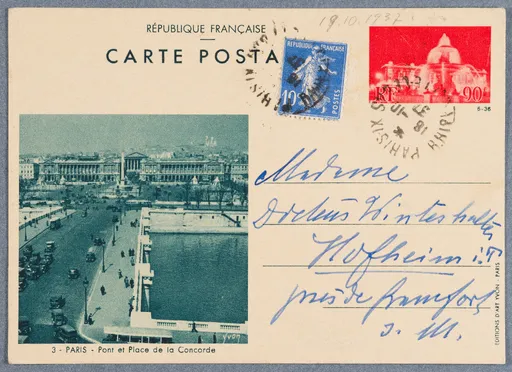 19.10.1937
RÉPUBLIQUE FRANÇAISE
CARTE POSTA
RÉPUBLIQUE FRANÇAISE
10c
POSTES
RF 90c
5-36
PARIS IX
18
Madame
Winterhalter
Hofheim i. T.
près de Frankfort
s. M.
YVON
3 - PARIS - Pont et Place de la Concorde
EDITIONS D'ART YVON PARIS